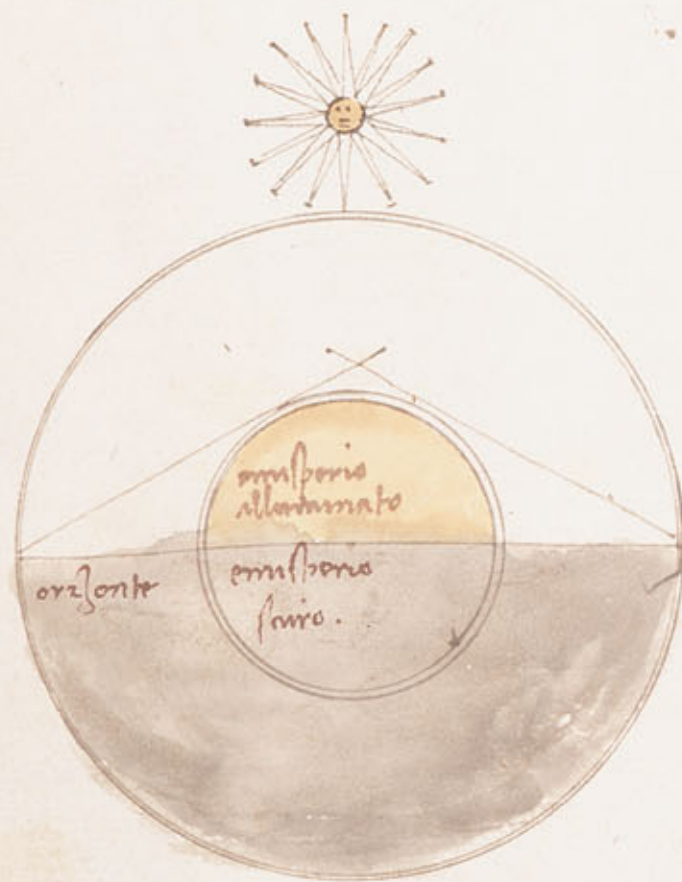 emisperio
illuminato
orizonte
emisperio
scuro.